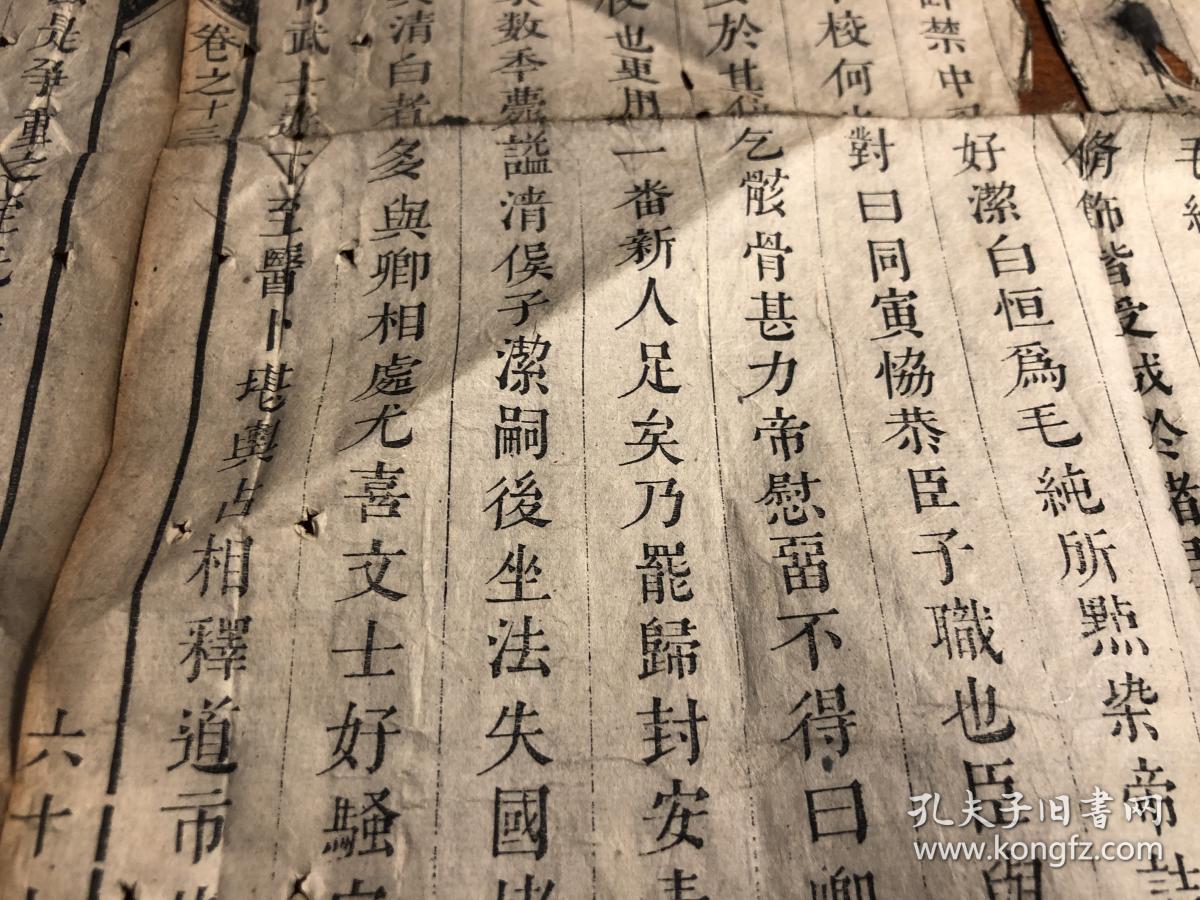 毛
脩飾皆受成於都
禁中
好潔白恒爲毛純所㸃染帝
校何
對曰同寅恊恭臣子職也臣與
於其
乞骸骨甚力帝慰畱不得曰卿
也更用一番新人足矣乃罷歸封安
數年薨謚清侯子潔嗣後坐法失國
清白者多與卿相處尤喜文士好騷
武士
下至醫卜堪輿占相釋道市
卷之十三
六十
是爭重之
孔夫子旧书网
www.kongfz.com